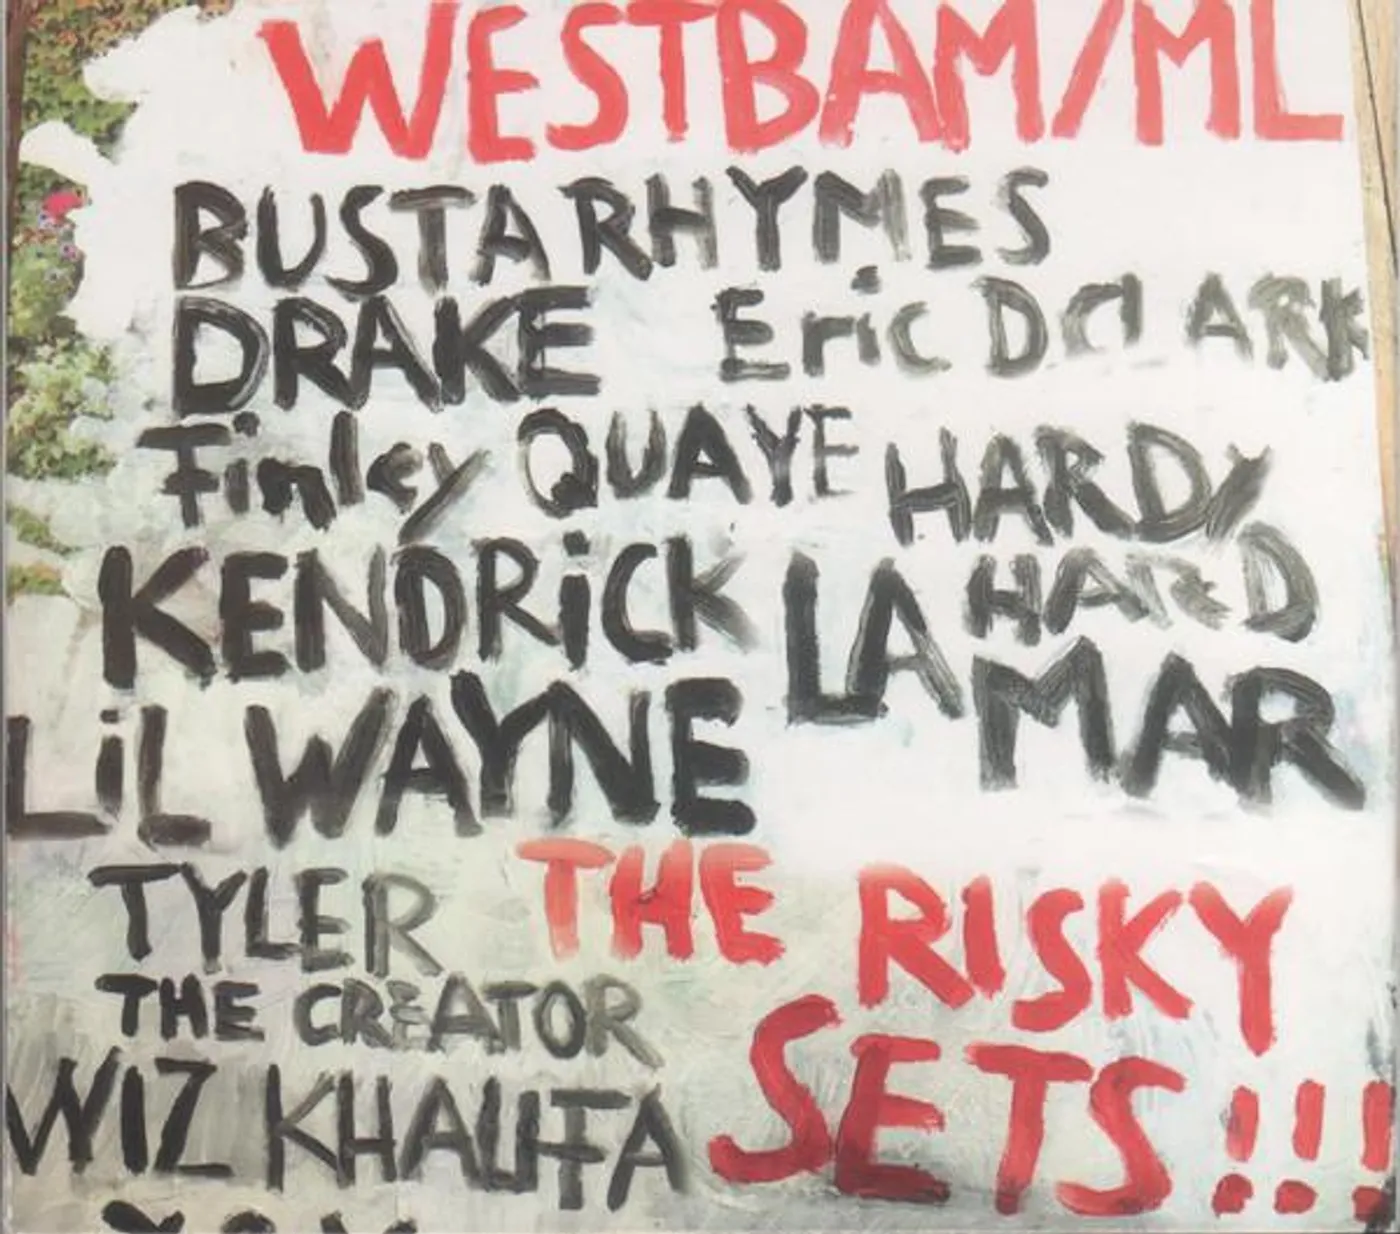 WESTBAM/ML
BUSTA RHYMES
DRAKE Eric D CLARK
Finley QUAYE HARDY
HARD
KENDRiCK LAMAR
LiL WAYNE
TYLER
THE CREATOR
THE RISKY
SETS!!!
WIZ KHALIFA